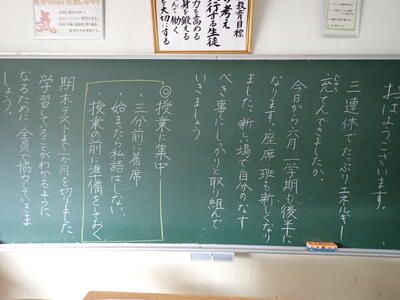 おはようございます。
三連休でたっぷりエネルギー
じゅう
充てんできましたか。
今日から六月、一学期も後半に
なります。座席、班も新しくなり
ました。新しい場で自分のなす
べき事にしっかりと取り組んで
いきましょう
◎授業に集中
・三分前に着席
・始まったら私語はしない
・授業の前に準備をしておく
期末テストまで一か月を切りました。
学習していることがわかるように
なるために、全員で協力していきま
しょう。
教育目標
考え
行する生徒
力を高める
身鍛える
んで働く
を大切にする
気